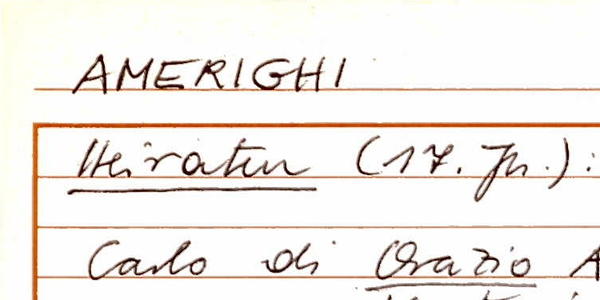 AMERIGHI
Heiraten (17. Jh.):
Carlo di Orazio A